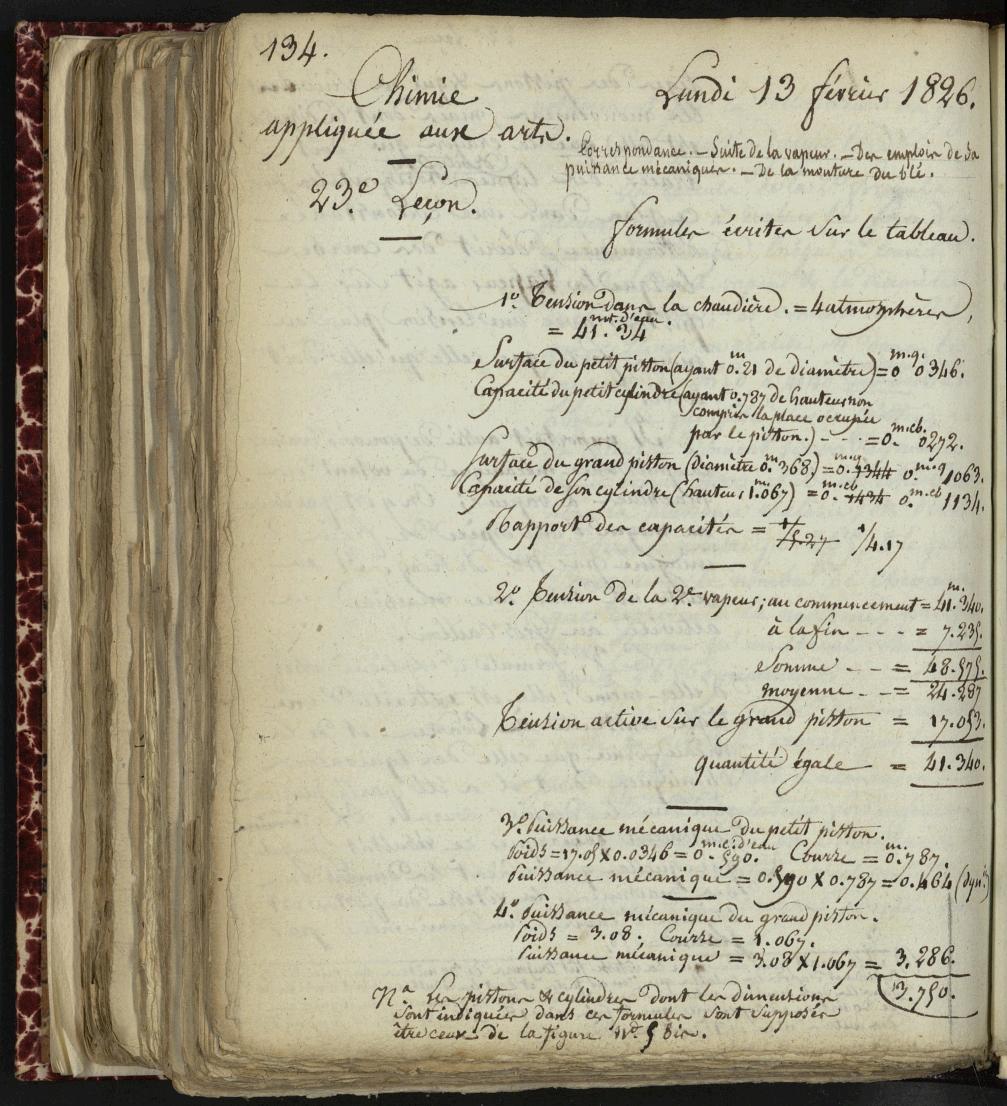 134.
Chimie
appliquée aux arts.
23.e Leçon.
Lundi 13 février 1826.
Correspondance. – Suite de la vapeur. – Des emplois de sa
puissance mécanique. – De la mouture du blé.
formules écrites sur le tableau.
1.o Tension dans la chaudière. = 4 atmosphères,
= 41.mt.d'eau.34
Surface du petit piston (ayant 0.m21 de diamètre) = 0.m.q.0346.
Capacité du petit cylindre (ayant 0.787 de hauteur non
compris la place occupée
par le piston.) – – – = 0.m.cb.0272.
Surface du grand piston (Diamètre 0.m368) = 0.m.q1344 0.m.q1063.
Capacité de son cylindre (hauteur 1.m067) = 0.m.cb1434 0.m.cb1134.
Rapport des capacités = 1/5.27 1/4.17
2.o Tension de la 2.e vapeur; au commencement = 41.m340.
à la fin – – – = 7.235.
Somme – – = 48.575.
moyenne – – = 24.287
Tension active sur le grand piston = 17.053.
quantité égale = 41.340.
3.o Puissance mécanique du petit piston.
Poids = 17.05 X 0.0346 = 0.m.c.d'eau590. Course = 0.m787.
Puissance mécanique = 0.590 X 0.787 = 0.464 (dyn.)
4.o Puissance mécanique du grand piston.
Poids = 3.08. Course = 1.067.
Puissance mécanique = 3.08 X 1.067 = 3.286.
3.750.
N.a Les pistons & cylindres dont les dimensions
sont indiquées dans ces formules sont supposés
être ceux de la figure N.o 5 bis.